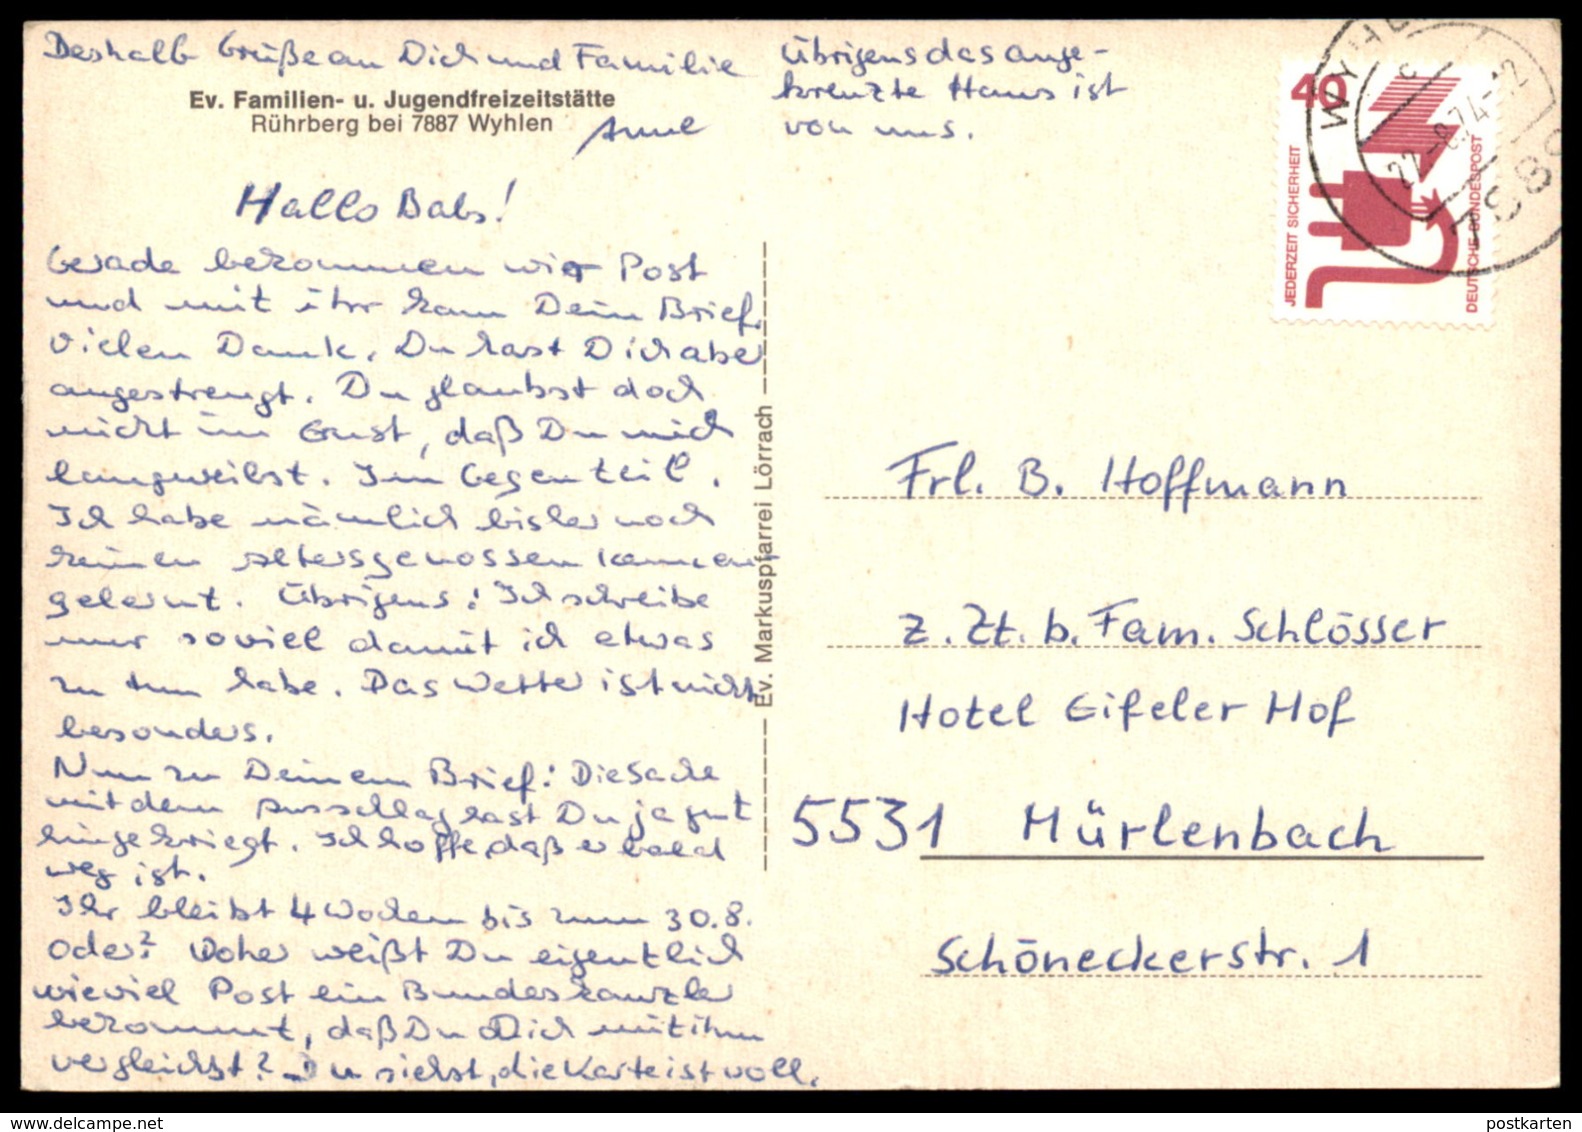 Deshalb Grüße an Dich und Familie
Ev. Familien- u. Jugendfreizeitstätte
Rührberg bei 7887 Wyhlen
Anne
Übrigens das ange-
kreuzte Haus ist
von uns.
Hallo Babs!
Gerade bekommen wir Post
und mit ihr kam Dein Brief.
Vielen Dank. Du hast Dich aber
angestrengt. Du glaubst doch
nicht im Ernst, daß Du mich
langweilst. Im Gegenteil.
Ich habe nämlich bisher noch
keinen Altersgenossen kennen
gelernt. Übrigens: Ich schreibe
nur soviel damit ich etwas
zu tun habe. Das Wetter ist nicht
besonders.
Nun zu Deinem Brief: Die Sache
mit dem Ausschlag hast Du ja gut
hingekriegt. Ich hoffe, daß er bald
weg ist.
Ihr bleibt 4 Wochen bis zum 30.8.
oder? Woher weißt Du eigentlich
wieviel Post ein Bundeskanzler
bekommt, daß Du Dich mit ihm
vergleichst? Du siehst, die Karte ist voll.
Ev. Markuspfarrei Lörrach
40
JEDERZEIT SICHERHEIT
DEUTSCHE BUNDESPOST
22.-8.74-12
Frl. B. Hoffmann
z. Zt. b. Fam. Schlösser
Hotel Eifeler Hof
5531 Mürlenbach
Schöneckerstr. 1
postkarten-ansichtskarten.com
postkarten